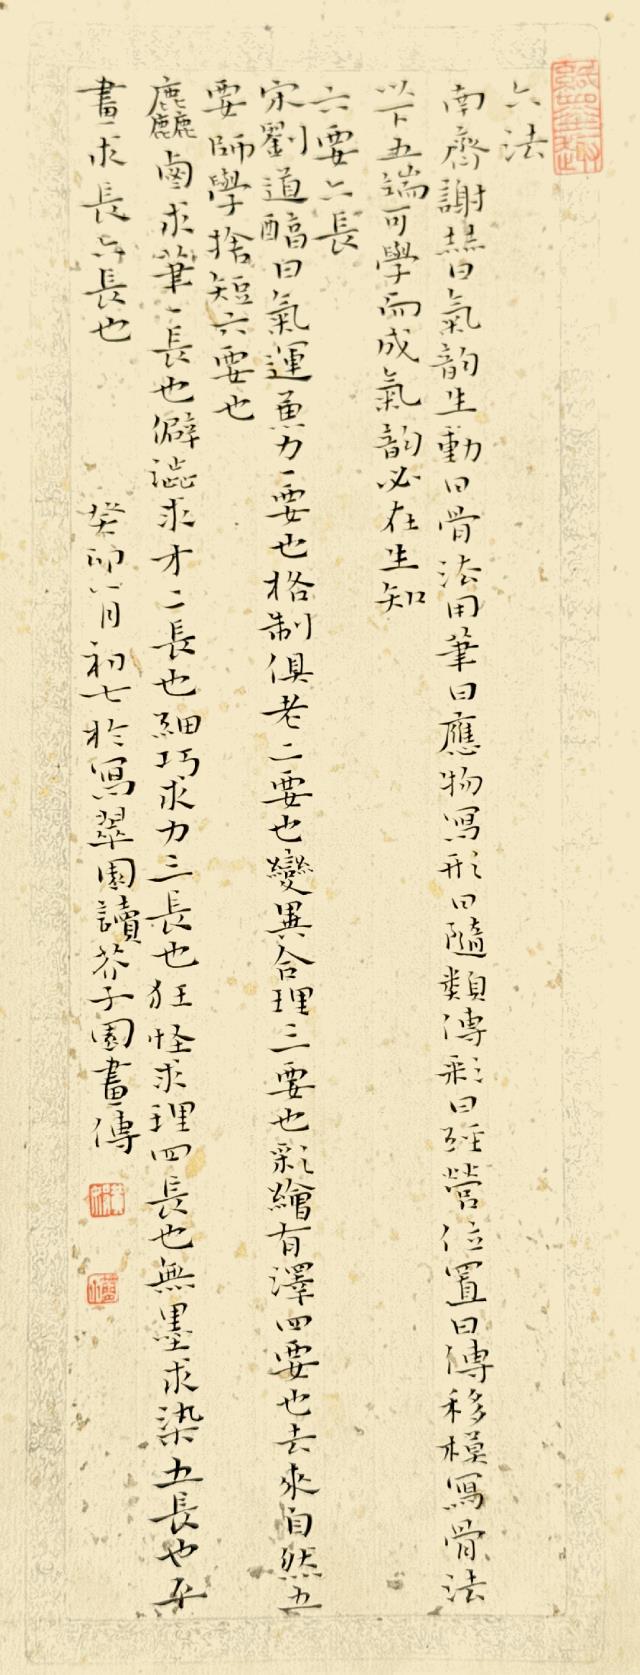 六法
南齊謝赫曰氣韵生動曰骨法用筆曰應物寫形曰隨類傅彩曰經營位置曰傳移模寫骨法
以下五端可學而成氣韵必在生知
六要六長
宋劉道醇曰氣運兼力一要也格制俱老二要也變異合理三要也彩繪有澤四要也去來自然五
要師學捨短六要也
麤鹵求筆一長也僻澁求才二長也細巧求力三長也狂怪求理四長也無墨求染五長也平
畫求長六長也
癸卯八月初七於寫翠園讀芥子園畫傳